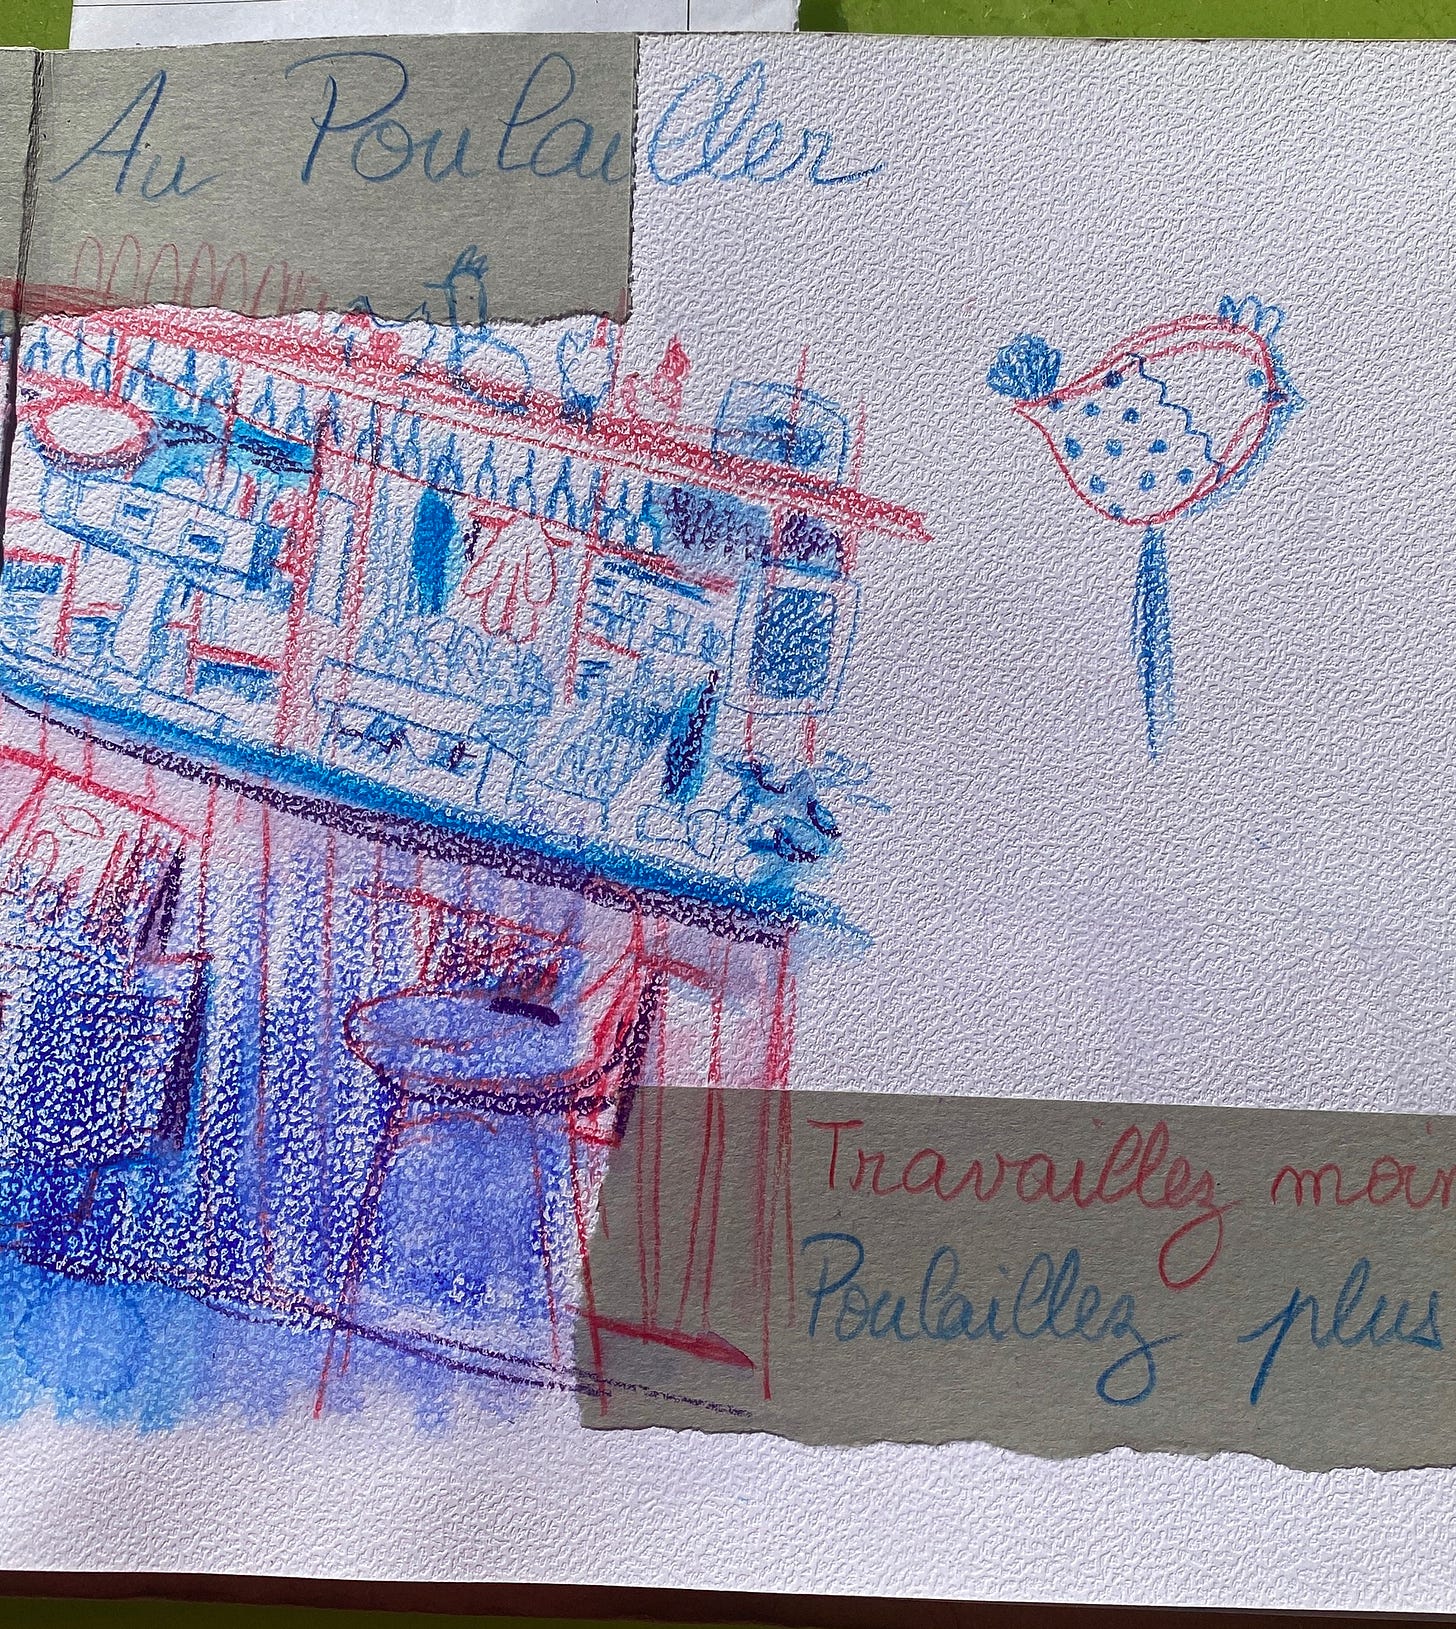 Au Poulailler
Travaillez moin
Poulaillez plus